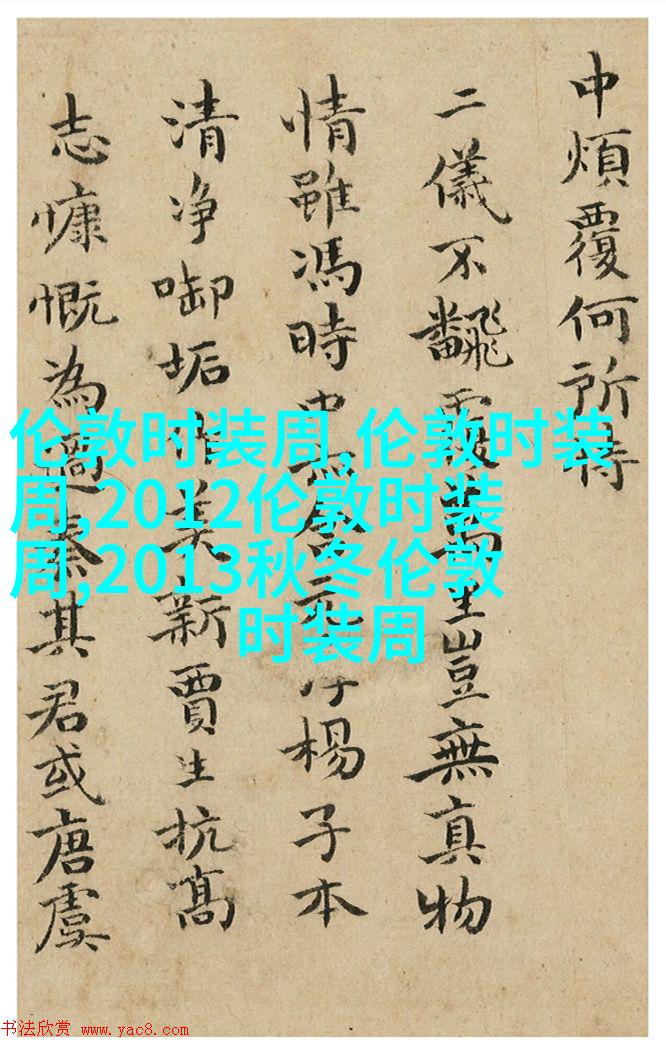 中煩覆何所
二儀不飜覆豈無真物
情雖馮時楊子本
清净啣垢作美新賈生抗高
志慷慨為過秦其君或唐虞
伦敦时装周,伦敦时装
周,2012伦敦时装
周,2013秋冬伦敦
时装周
书法欣赏 www.yac8.com